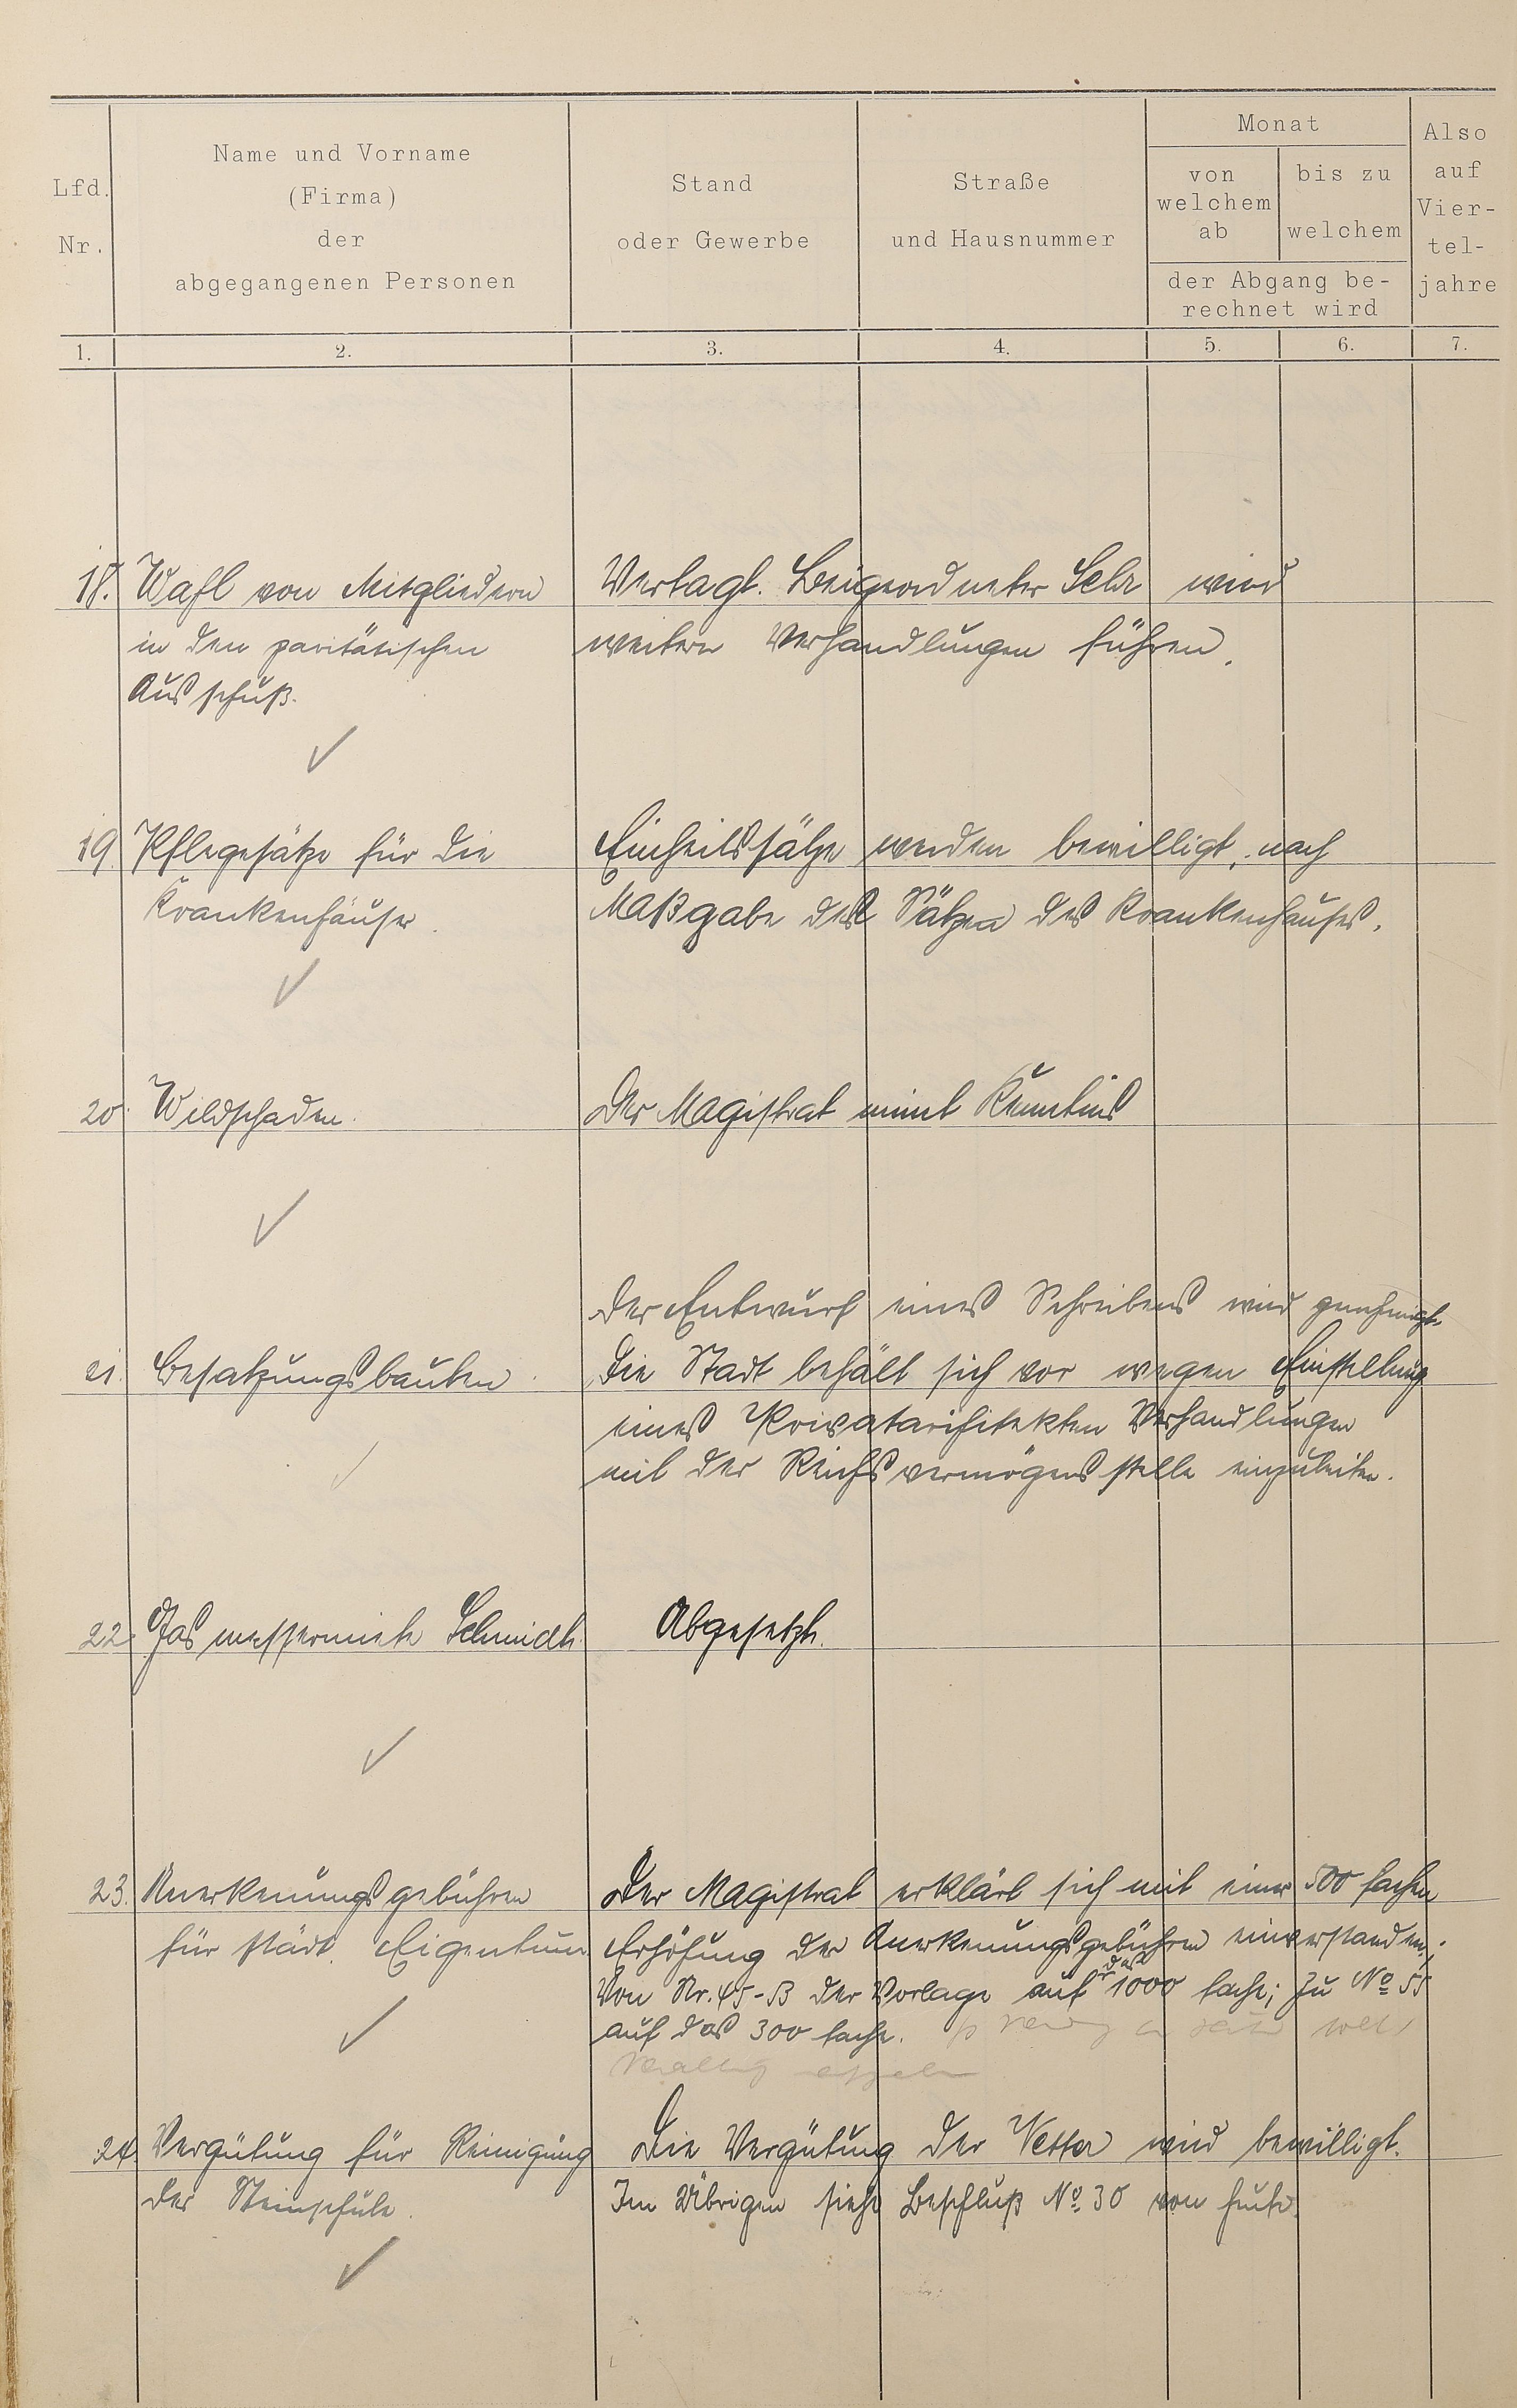 Lfd. Nr.
Name und Vorname
(Firma)
der
abgegangenen Personen
Stand
oder Gewerbe
Straße
und Hausnummer
Monat
von welchem ab
bis zu welchem
der Abgang be-
rechnet wird
Also
auf
Vier-
tel-
jahre
1. 2. 3. 4. 5. 6. 7.
18. Wahl von Mitgliedern
in den paritätischen
Ausschuß.
Vertagt. Beigeordneter Sehr wird
weitere Verhandlungen führen.
19. Pflegesätze für die
Krankenhäuser.
Einheitssätze werden bewilligt, nach
Maßgabe der Sätze des Krankenhauses.
20. Wildschaden.
Der Magistrat nimt Kenntnis
21. Besatzungsbauten.
Der Entwurf eines Schreibens wird genehmigt.
Die Stadt behält sich vor wegen Einstellung
eines Privatarchitekten Verhandlungen
mit der Reichsvermögensstelle einzuleiten.
22. Gasmessermiete Schmidt.
Abgesetzt.
23. Anerkennungsgebühren
für städt. Eigentum
Der Magistrat erklärt sich mit einer 500 fachen
Erhöhung der Anerkennungsgebühren einverstanden;
Von Nr. 45-53 der Vorlage auf das 1000 fache; zu No 55
auf das 300 fache.
24. Vergütung für Reinigung
der Steinschule.
Die Vergütung der Vetter wird bewilligt.
Im Übrigen siehe Beschluß No. 30 von heute.